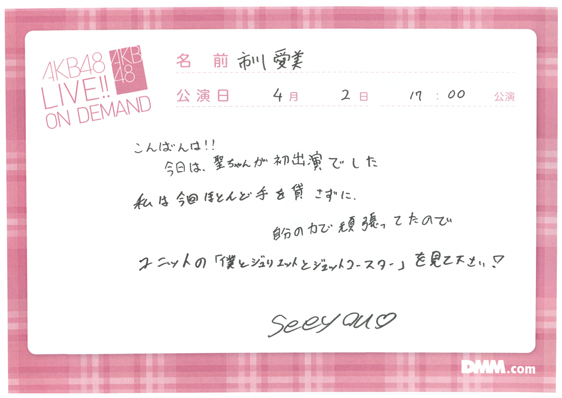 AKB48
LIVE!!
ON DEMAND
AKB
48
名 前 市川愛美
公演日 4月 2日 17:00 公演
こんばんは!!
今日は、聖ちゃんが初出演でした
私は今回ほとんど手を貸さずに、
自分の力で頑張ってたので
ユニットの「僕とジュリエットとジェットコースター」を見て下さい!
see you♡
DMM.com